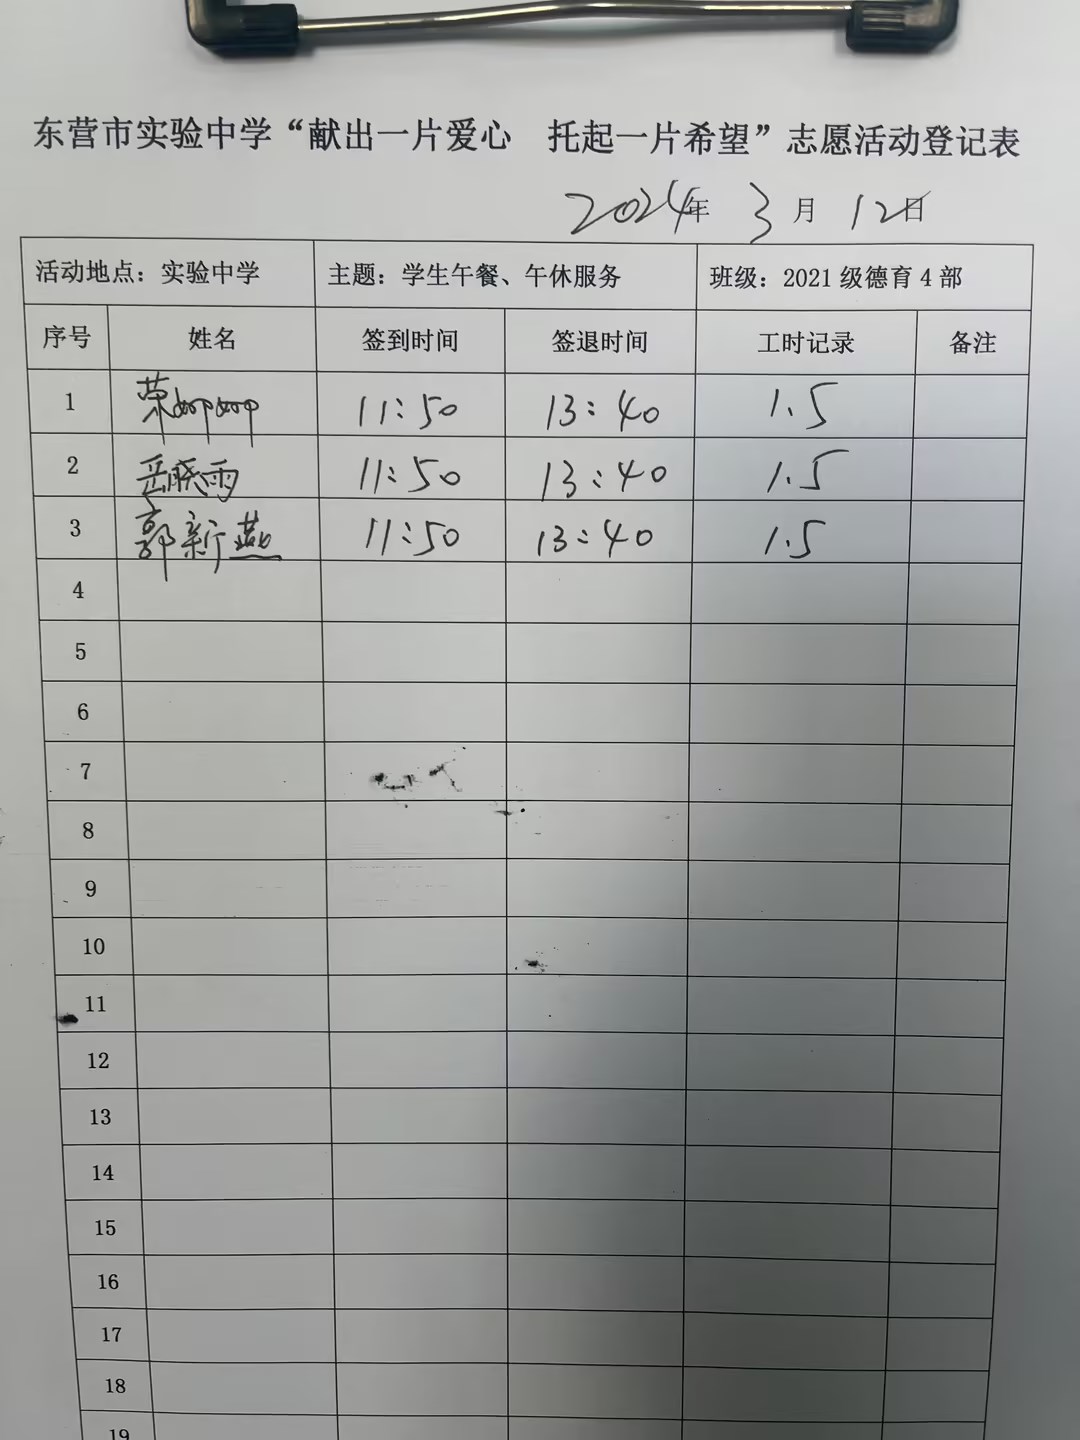 东营市实验中学“献出一片爱心 托起一片希望”志愿活动登记表
2024年 3月 12日
活动地点：实验中学 主题：学生午餐、午休服务 班级：2021级德育4部
序号 姓名 签到时间 签退时间 工时记录 备注
1 荣 11:50 13:40 1.5
2 岳晓雨 11:50 13:40 1.5
3 郭新燕 11:50 13:40 1.5
4
5
6
7
8
9
10
11
12
13
14
15
16
17
18
19